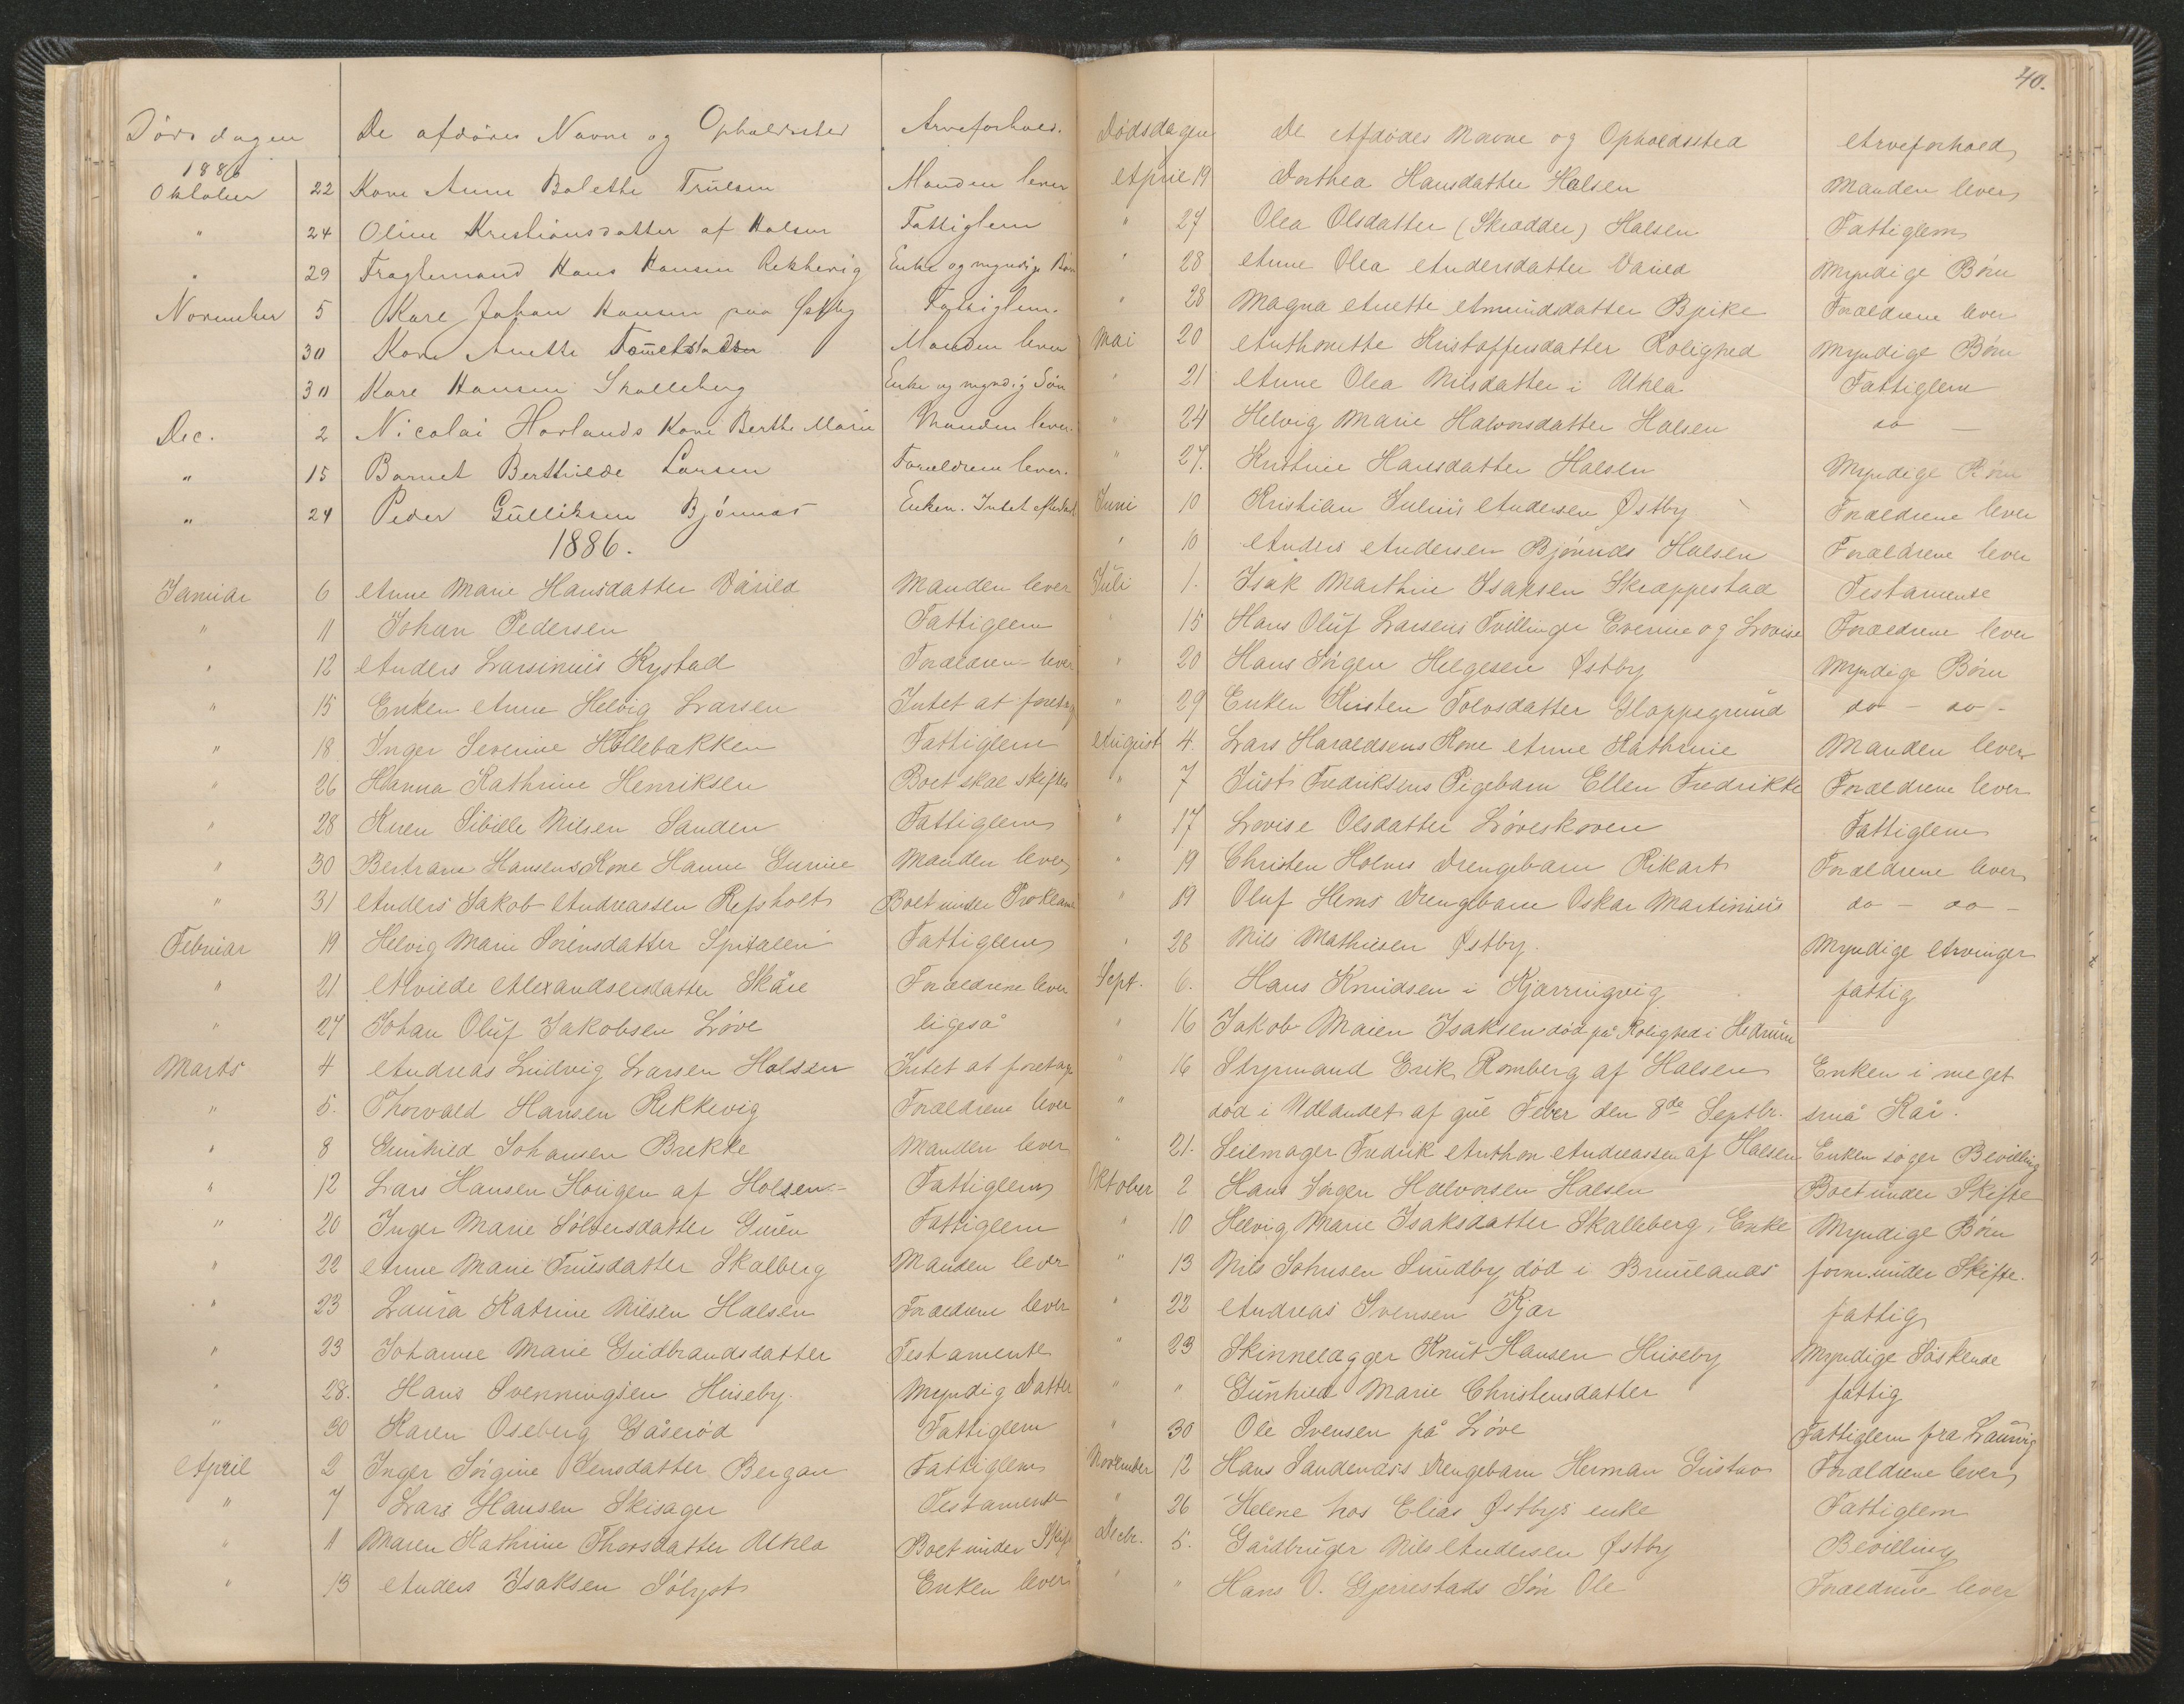 Dødsdagen De afdødes Navne og Opholdssted Arveforhold.
1886
Oktober 22 Kone Anne Bolette Truelsen Manden lever
" 24 Oline Kristiansdatter af Halsen Fattiglem
" 29 Fragtemand Hans Hansen Rekkevig Enke og myndige Børn
November 5 Kare Johan Hansen paa Østby Fattiglem.
30 Kone Anette Manden lever
30 Kare Hansen Skalleberg Enke og myndig Søn
Dec. 2 Nicolai Hovlands Kone Berthe Marie Manden lever.
" 15 Barnet Berthilde Larsen Forældrene lever.
" 24 Peder Gulliksen Bjønnes Enken. Intet efterladt
1886.
Januar 6 Anne Marie Hansdatter Vårild Manden lever
" 11 Johan Pedersen Fattiglem
" 12 Anders Larsinius Rystad Forældrene lever
" 15 Enken Anne Helvig Larsen Intet at foretage
" 18 Inger Severine Hollebakken Fattiglem
" 26 Hanna Kathrine Henriksen Boet skal skiftes
" 28 Karen Sibille Nilsen Sanden Fattiglem
" 30 Bertram Hansens Kone Hanne Gurine Manden lever
" 31 Anders Jakob Andreassen Refsholt Boet under Proklama
Februar 19 Helvig Marie Sørensdatter Spitalen Fattiglem
" 21 Alvilde Alexandersdatter Skåre Forældrene lever
" 27 Johan Oluf Jakobsen Løve ligeså
Marts 4 Andreas Ludvig Larsen Halsen Intet at foretage
" 5. Thorvald Hansen Rekkevig Forældrene lever
" 8 Gunhild Johansen Brekke Manden lever
" 12 Lars Hansen Haugen af Halsen - Fattiglem
" 20 Inger Marie Sølversdatter Guren Fattiglem
" 22 Anne Marie Trulsdatter Skalberg Manden lever
" 23 Laura Katrine Nilsen Halsen Forældrene lever
" 23 Johanne Marie Gudbrandsdatter Testamente
" 28. Hans Svenningsen Huseby. Myndig Datter
" 30 Karen Oseberg Gåserød Fattiglem
April 2 Inger Sørgine Jensdatter Bergan Fattiglem
" 7 Lars Hansen Skisager Testament
" 11 Maren Kathrine Thorsdatter Atkla Boet under Skifte
" 13 Anders Isaksen Sølyst Enken lever
40.
Dødsdagen De Afdødes Navne og Opholdssted Arveforhold
April 19 Dorthea Hansdatter Halsen Manden lever
" 27 Olea Olsdatter (Skrædder) Halsen Fattiglem
" 28 Anne Olea Andersdatter Vårild Myndige Børn
" 28 Magna Anette Amundsdatter Bpike Forældrene lever
Mai 20 Anthonette Kristoffersdatter Rolighed Myndige Børn
" 21 Anne Olea Nilsdatter i Atkla Fattiglem
" 24 Helvig Marie Halvorsdatter Halsen do —
" 27. Kristine Hansdatter Halsen Myndige Børn
Juni 10 Kristian Julius Andersen Østby Forældrene lever
" 10 Anders Andersen Bjønnes Halsen Forældrene lever
Juli 1. Isak Marthin Isaksen Skræppestad Testamente
" 15 Hans Oluf Larsens Tvillinger Evenine og Lovise Forældrene lever
" 20 Hans Jørgen Helgesen Østby Myndige Børn
" 29 Enken Kirsten Tolvsdatter Gloppegrund do - do -
August 4. Lars Haraldsens Kone Anne Kathrine Manden lever
" 7 Just Fredriksens Pigebarn Ellen Fredrikke Forældrene lever
" 17 Lovise Olsdatter Løveskoven Fattiglem
" 19 Christen Holms Drengebarn Rikart Forældrene lever
" 19 Oluf Hems Drengebarn Oskar Martinius do - do -
" 28 Nils Mathisen Østby. Myndige Arvinger
Sept. 6. Hans Knudsen i Kjærringvig fattig
" 16 Jakob Maien Isaksen død på Rolighed i Hedrum
" 16 Styrmand Erik Romberg af Halsen Enken i meget
" død i Udlandet af gul Feber den 8de Septbr. små Kår.
" 21. Seilmager Fredrik Anthon Andreassen af Halsen Enken søger Bevilling
Oktober 2 Hans Jørgen Halvorsen Halsen Boet under Skifte
" 10 Helvig Marie Isaksdatter Skalleberg, Enke Myndige Børn
" 13 Nils Johnsen Sundby død i Brunlanæs form. under Skifte.
" 22 Andreas Svensen Kjær fattig
" 23 Skinnelægger Knut Hansen Huseby Myndige Søskende
" " Gunhild Marie Christensdatter fattig
" 30 Ole Svensen på Løve Fattiglem fra Laurvig
November 12 Hans Sandenæs Drengebarn Herman Gustav Forældrene lever
" 26 Helene hos Elias Østbys enke Fattiglem
Decbr. 5. Gårdbruger Nils Andersen Østby Bevilling
" " Hans O. Gjerrestads Søn Ole Forældrene lever